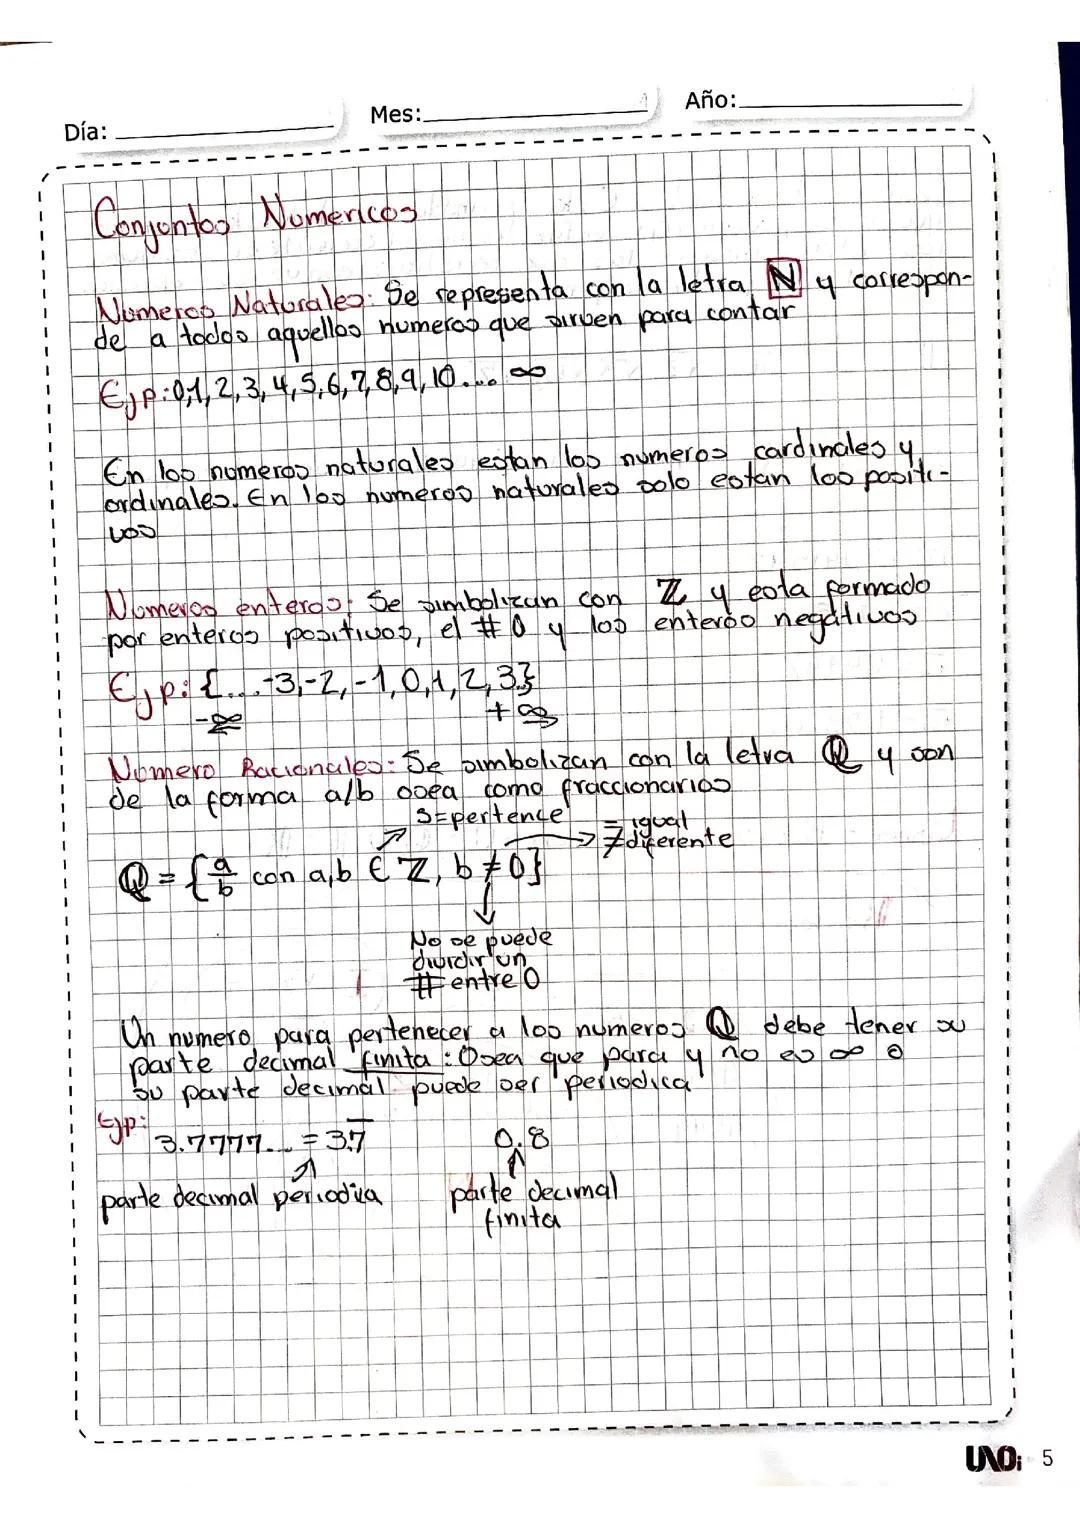 Día: Mes: Año:
Conjuntos Numericos
Numeros Naturales: Se representa con la letra N y correspon-
de a todos aquellos numeros que sirven para contar
Ejp: 0,1,2,3,4,5,6,7,8,9,10.... ∞
En los numeros naturales estan los numeros cardinales y
ordinales. En los numeros naturales solo estan los positi-
vos
Numeros enteros: Se simbolizan con ℤ y esta formado
por enteros positivos, el # 0 y los enteros negativos
Ejp: {...-3,-2,-1,0,1,2,3}
-∞ +∞
Numero Racionales: Se simbolizan con la letra ℚ y son
de la forma a/b osea como fraccionarios
S=pertence = igual
≠ diferente
ℚ = {a/b con a,b ∈ ℤ, b ≠ 0}
No se puede
dividir un
# entre 0
Un numero para pertenecer a los numeros ℚ debe tener su
parte decimal finita: Osea que para y no es ∞ o
su parte decimal puede ser periodica
Ejp:
3.7777... = 3.7̅ 0.8
parte decimal periodica parte decimal
finita
UNOi 5